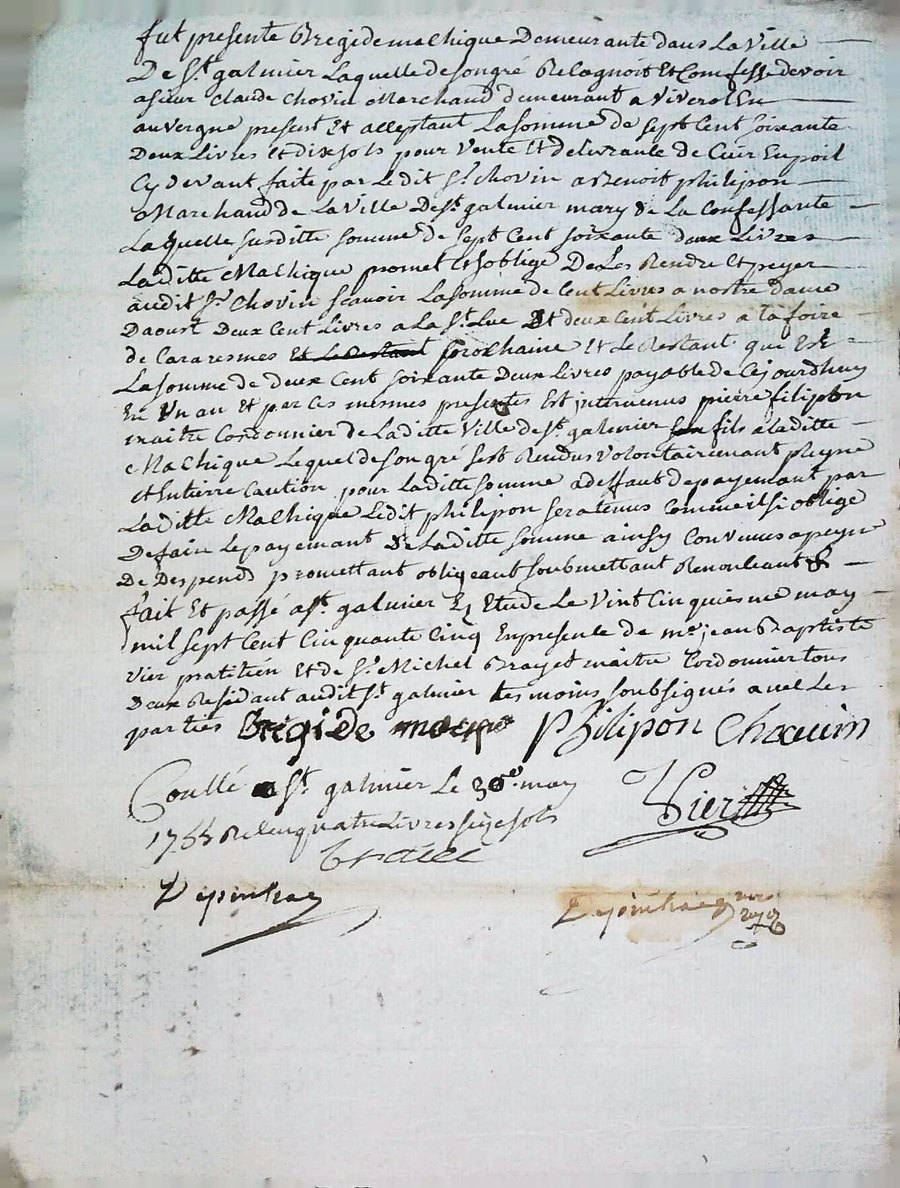 fut presente Bregide mathique Demeurante dans La Ville
De St. galmier Laquelle de son gré Relagnoit Et Comfesse devoir
a sieur Claude Chovin Marchand demeurant a Viverol En
auvergne present Et acceptant La somme de sept Cent soixante
Deux Livres et dix sols pour Vente Et delivrance de Cuir En poil
Cy devant faite par Le dit Sr. Chovin a Benoit philipon
Marchand de La Ville De St. galmier mary de La Confessante
Laquelle susditte somme de sept Cent soixante deux Livres
Laditte Mathique promet Et soblige De Les Rendre Et peyer
audit Sr. Chovin scavoir La somme de Cent Livres a nostre dame
Daoust Deux Cent Livres a La St. Luc Et deux Cent Livres a la foire
de Cararesmes Et Le Restant prochaine Et Le Restant qui Est
La somme de deux Cent soixante Deux Livres payable de Cejourdhuy
En Un an Et par Ces mesmes presentes Est intervenus pierre filipon
maitre Cordonnier de Laditte Ville de St. galmier son fils a laditte
Mathique Lequel de son gré sest Rendus Volontairemant pleyne
et Entierre Caution pour Laditte somme a deffaut de payemant par
Laditte Mathique Ledit philipon sera tenus Comme il si oblige
De fair Le payemant De Laditte somme ainsy Convenus a peyne
De Despends promettant obligeant soubmettant Renonceant &
fait Et passé a St. galmier En Etude Le Vint Cinquiesme may
mil sept Cent Cinquante Cinq En presence de me. jean Baptiste
Vier pratitien Et de Sr. Michel Brayet maitre Cordonnier tous
Deux Residant audit St. galmier tesmoins soubsignés avec Les
parties Bregide Philipon Chovin
Conllé a St. galmier Le 30e. may
Vier
1755 Receu quatre Livres seize sols
Depinhac
Depinhac nore
royal